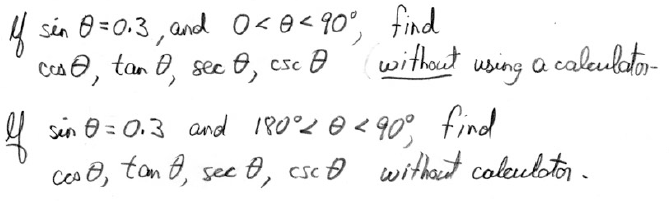 If sin θ = 0.3, and 0 < θ < 90°, find
cos θ, tan θ, sec θ, csc θ (without using a calculator-
If sin θ = 0.3 and 180° < θ < 90°, find
cos θ, tan θ, sec θ, csc θ without calculator.